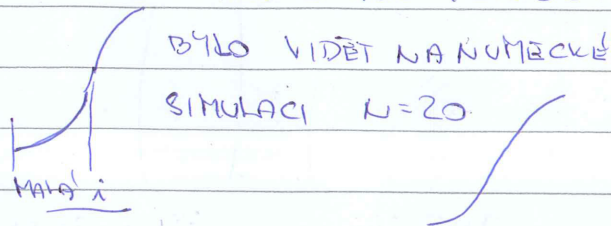 BYLO VIDĚT NA NUMECKÉ
SIMULACI N=20
MALÁ i